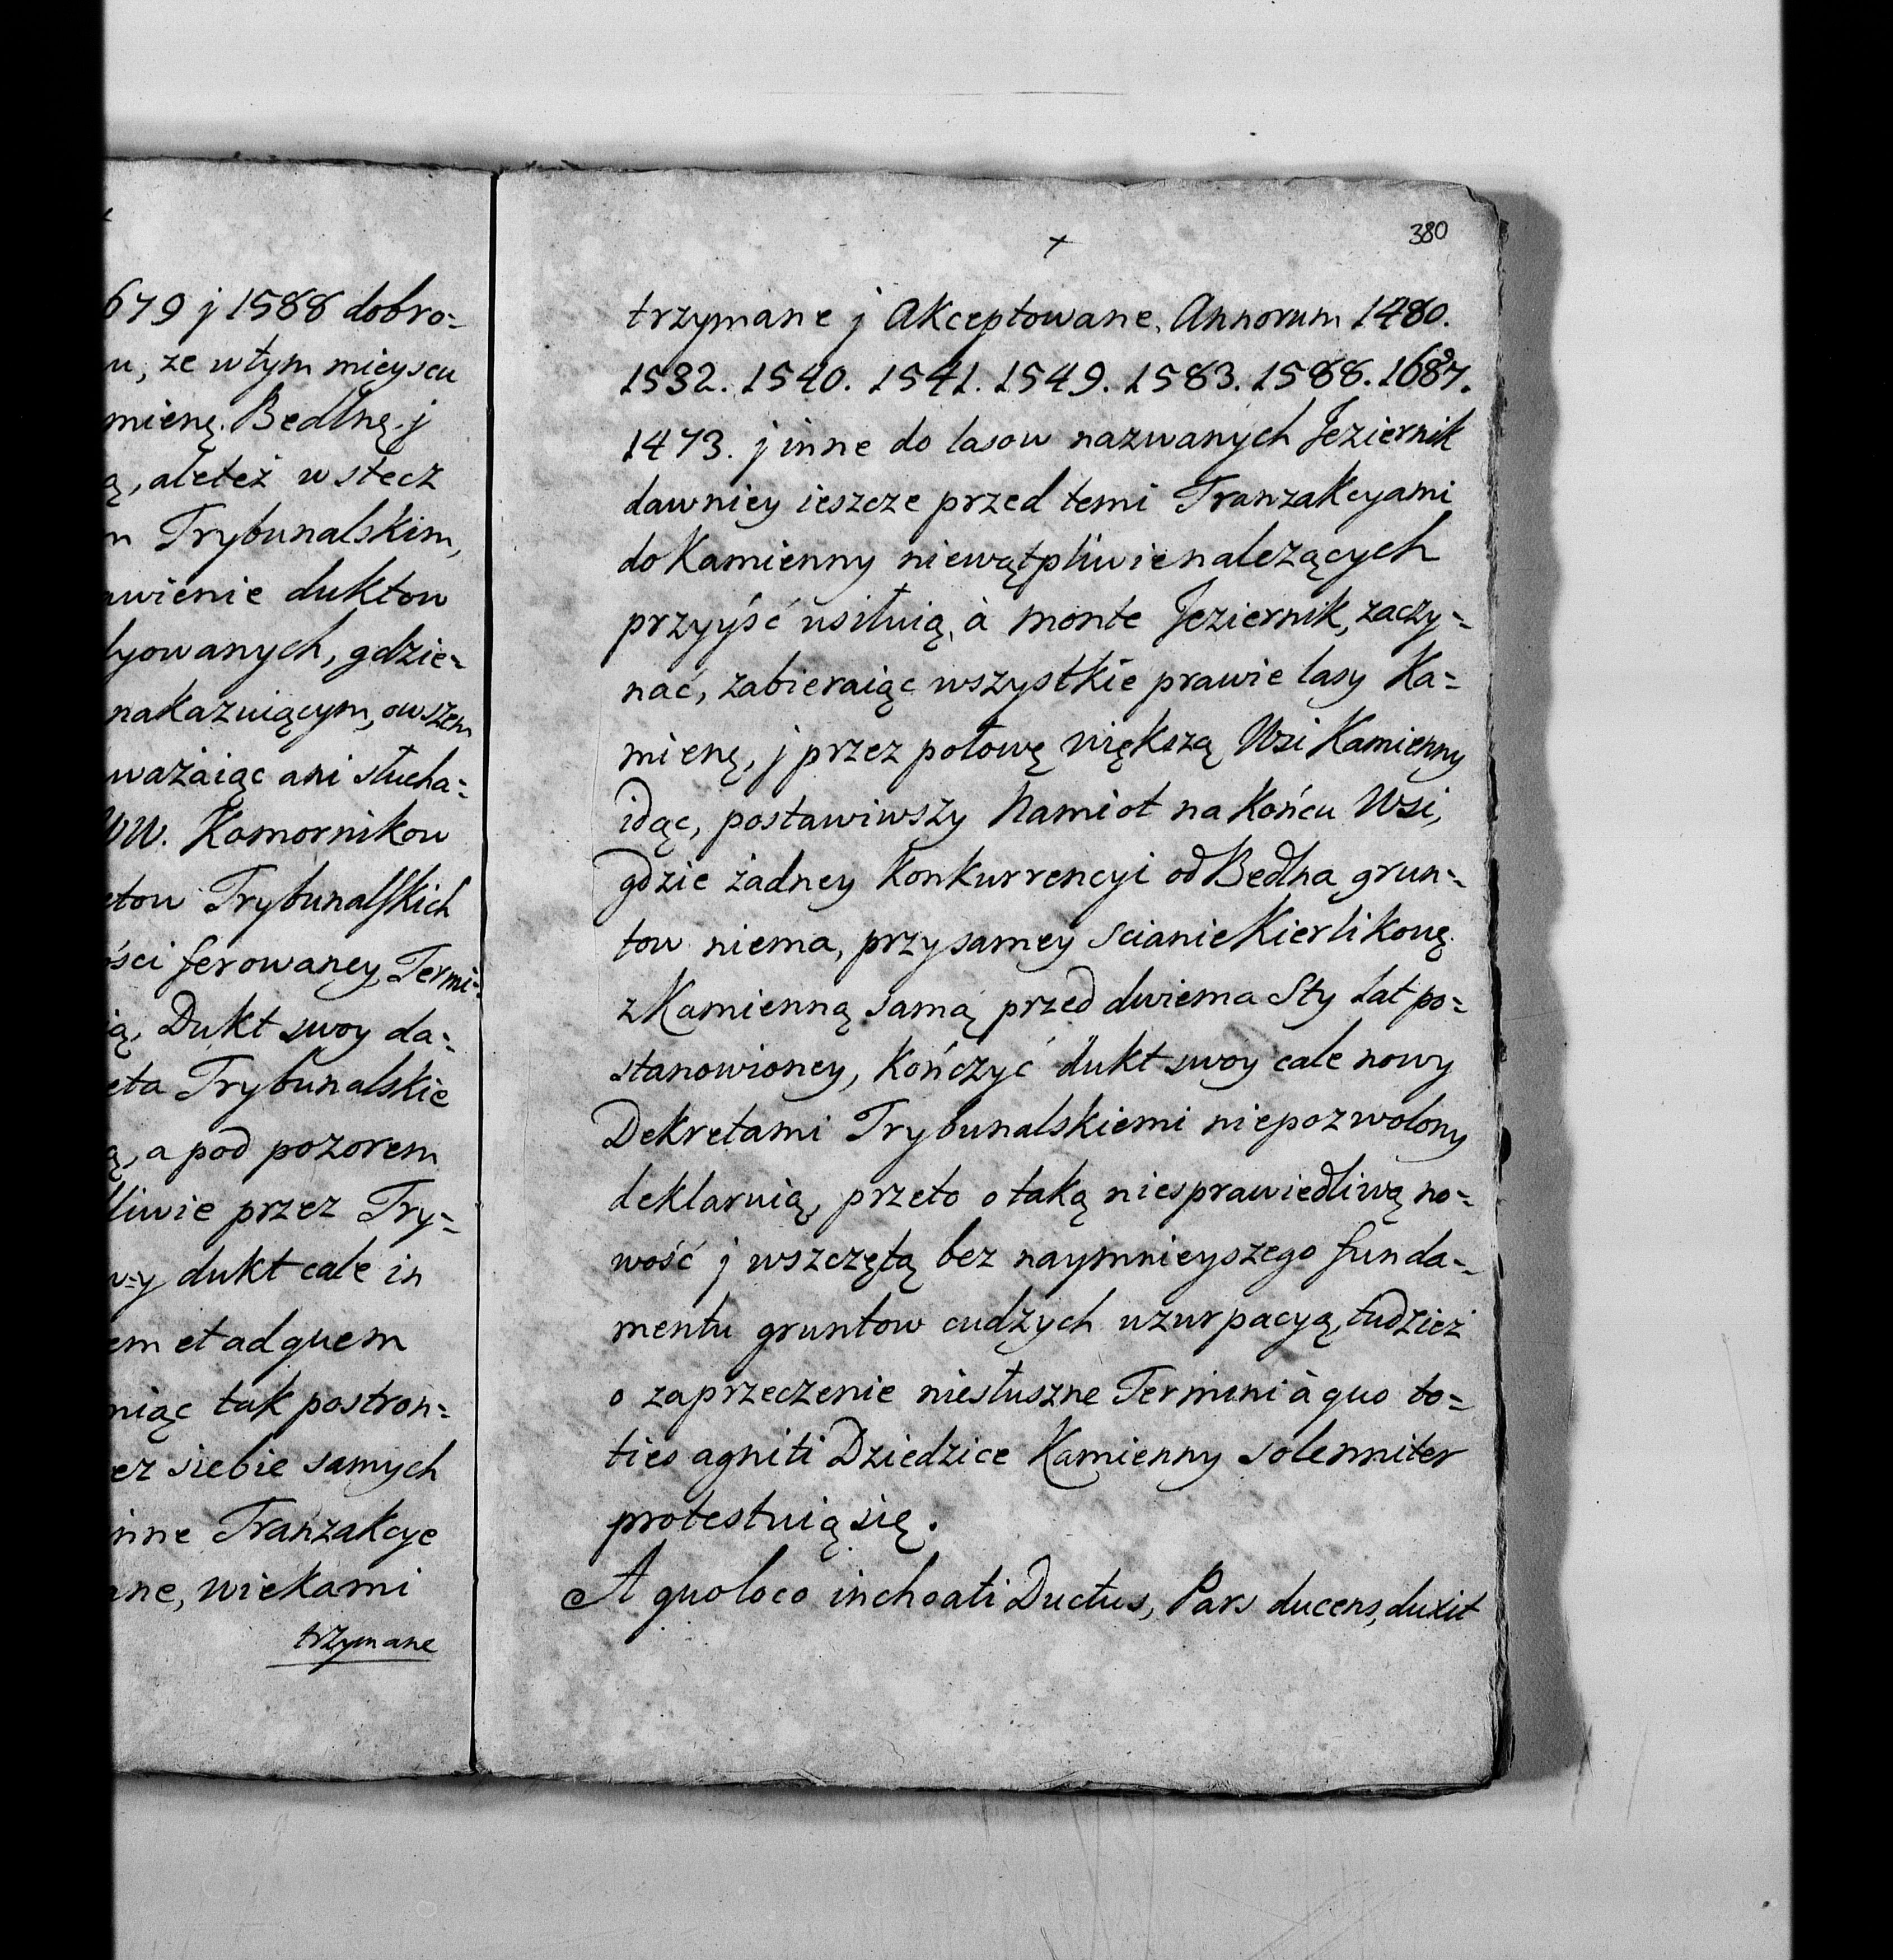 679 j 1588 dobro=
u, ze wtym mieyscu
mienę. Bedlnę. j
ą, aleteż wstecz
n Trybunalskim,
awienie duktow
lyowanych, gdzie=
nakazuiącym, owszem
uważaiąc ani słucha=
WW. Komornikow
etow Trybunalskich
ości ferowaney, Termi=
ią, Dukt swoy da=
eta Trybunalskie
ą, a pod pozorem
liwie przez Try=
y dukt cale in
em et ad quem
niąc tak postron=
ez siebie samych
inne Tranzakcye
ane, wiekami
trzymane
380
trzymane j Akceptowane. Annorum 1480.
1532. 1540. 1541. 1549. 1583. 1588. 1687.
1473. j inne do lasow nazwanych Jeziernik
dawniey ieszcze przed temi Tranzakcyami
do Kamienny niewątpliwie nalezących
przyyść usiłuią, à monte Jeziernik, zaczy=
nać, zabieraiąc wszystkie prawie lasy Ka=
mienę, j przez połowę większą Wsi Kamienny
idąc, postawiwszy Namiot na Końcu Wsi,
gdzie żadney Konkurrencyi od Bedlna grun=
tow niema, przy samey scianie Kierlikowę
z Kamienną samą przed dwiema Sty Lat po=
stanowioney, Kończyć dukt swoy cale nowy
Dekretami Trybunalskiemi niepozwolony
deklaruią, przeto o taką niesprawiedliwą no=
wość j wszczętą bez naymnieyszego funda=
mentu gruntow cudzych uzurpacyą, tudzież
o zaprzeczenie niesłuszne Termini à quo to=
ties agniti Dziedzice Kamienny solemniter
protestuią się.
A quo loco inchoati Ductus, Pars ducens, duxit